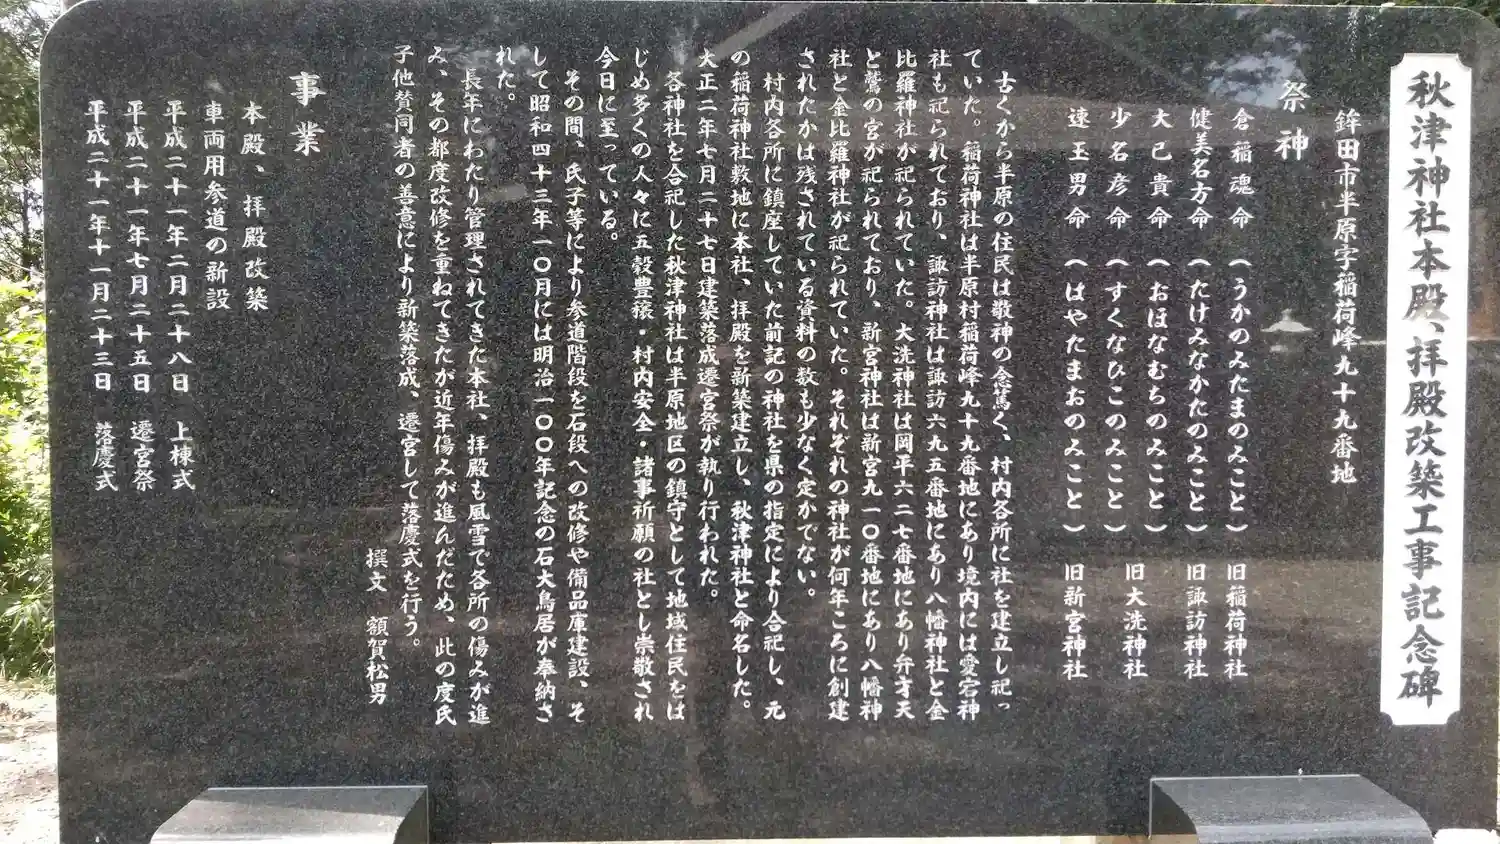 秋津神社本殿、拝殿改築工事記念碑
鉾田市半原字稲荷峰九十九番地
祭神
倉稲魂命（うかのみたまのみこと）旧稲荷神社
健美名方命（たけみなかたのみこと）旧諏訪神社
大己貴命（おほなむちのみこと）
少名彦命（すくなひこのみこと）旧大洗神社
速玉男命（はやたまおのみこと）旧新宮神社
古くから半原の住民は敬神の念篤く、村内各所に社を建立し祀っ
ていた。稲荷神社は半原村稲荷峰九十九番地にあり境内には愛宕神
社も祀られており、諏訪神社は諏訪六九五番地にあり八幡神社と金
比羅神社が祀られていた。大洗神社は岡平六二七番地にあり弁才天
と鷲の宮が祀られており、新宮神社は新宮九一〇番地にあり八幡神
社と金比羅神社が祀られていた。それぞれの神社が何年ころに創建
されたかは残されている資料の数も少なく定かでない。
村内各所に鎮座していた前記の神社を県の指定により合祀し、元
の稲荷神社敷地に本社、拝殿を新築建立し、秋津神社と命名した。
大正二年七月二十七日建築落成遷宮祭が執り行われた。
各神社を合祀した秋津神社は半原地区の鎮守として地域住民をは
じめ多くの人々に五穀豊穣・村内安全・諸事祈願の社とし崇敬され
今日に至っている。
その間、氏子等により参道階段を石段への改修や備品庫建設、そ
して昭和四十三年一〇月には明治一〇〇年記念の石大鳥居が奉納さ
れた。
長年にわたり管理されてきた本社、拝殿も風雪で各所の傷みが進
み、その都度改修を重ねてきたが近年傷みが進んだため、此の度氏
子他賛同者の善意により新築落成、遷宮して落慶式を行う。
撰文　額賀松男
事業
本殿、拝殿改築
車両用参道の新設
平成二十一年二月二十八日　上棟式
平成二十一年七月二十五日　遷宮祭
平成二十一年十一月二十三日　落慶式